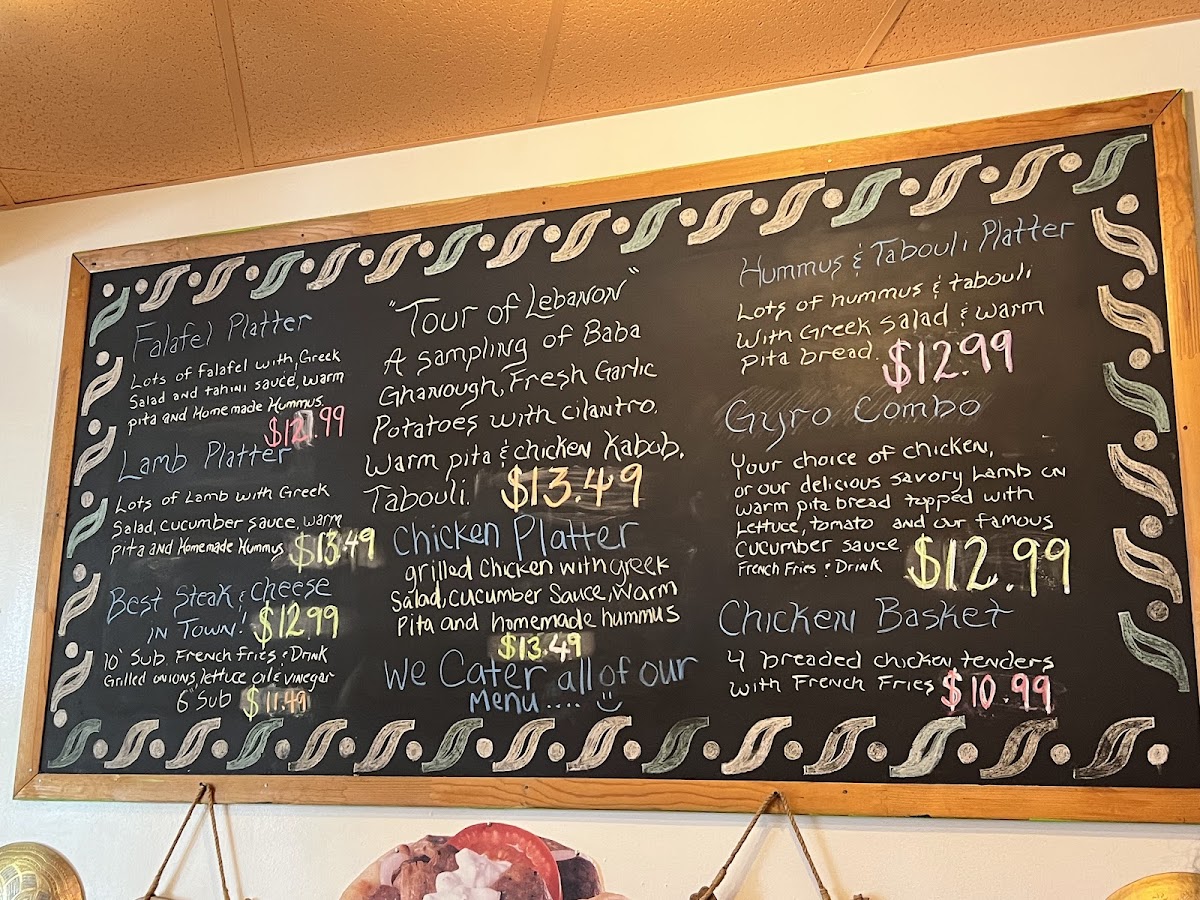 Falafel Platter
Lots of Falafel with Greek
Salad and tahini sauce, warm
pita and Homemade Hummus
$12.99
Lamb Platter
Lots of Lamb with Greek
Salad, cucumber sauce, warm
pita and Homemade Hummus $13.49
Best Steak & cheese
in Town! $12.99
10" Sub French Fries & Drink
Grilled onions, lettuce oil & vinegar
6" Sub $11.49
"Tour of Lebanon"
A sampling of Baba
Ghanough, Fresh Garlic
Potatoes with cilantro,
warm pita & chicken Kabob,
Tabouli. $13.49
Chicken Platter
grilled Chicken with greek
Salad, cucumber Sauce, warm
Pita and homemade hummus
$13.49
We Cater all of our
Menu....
Hummus & Tabouli Platter
Lots of hummus & tabouli
with Greek salad & warm
pita bread. $12.99
Gyro Combo
Your choice of chicken,
or our delicious savory Lamb on
warm pita bread topped with
Lettuce, tomato and our famous
cucumber sauce.
French Fries & Drink $12.99
Chicken Basket
4 breaded chicken tenders
with French Fries $10.99